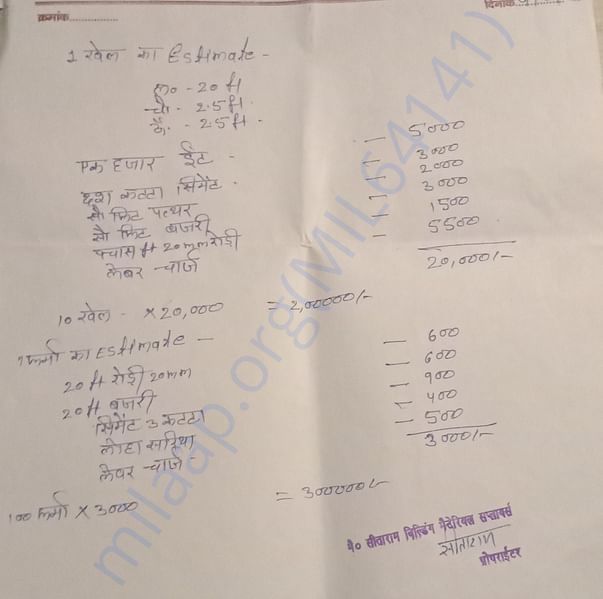 क्रमांक.............
दिनांक.............
1 खेल का Estimate -
ल० - 20 ft
चौ. - 2.5 ft.
ऊँ. - 2.5 ft.
एक हजार ईंट - — 5000
दश कटटा सिमेंट. — 3000
सौ फिट पत्थर — 2000
सौ फिट बजरी — 3000
पचास ft 20mm रोड़ी — 1500
लेबर चार्ज — 5500
20,000/-
10 खेल - × 20,000 = 2,00000/-
1 फर्मा का Estimate -
20 ft रोड़ी 20mm — 600
20 ft बजरी — 600
सिमेंट 3 कटटा — 900
लोहा सरिया — 400
लेबर चार्ज - — 500
3000/-
100 फर्मा × 3000 = 3000000/-
मै० सीताराम बिल्डिंग मैटेरियल सप्लायर्स
सीताराम
प्रोपराईटर
milaap.org(MIL64141)